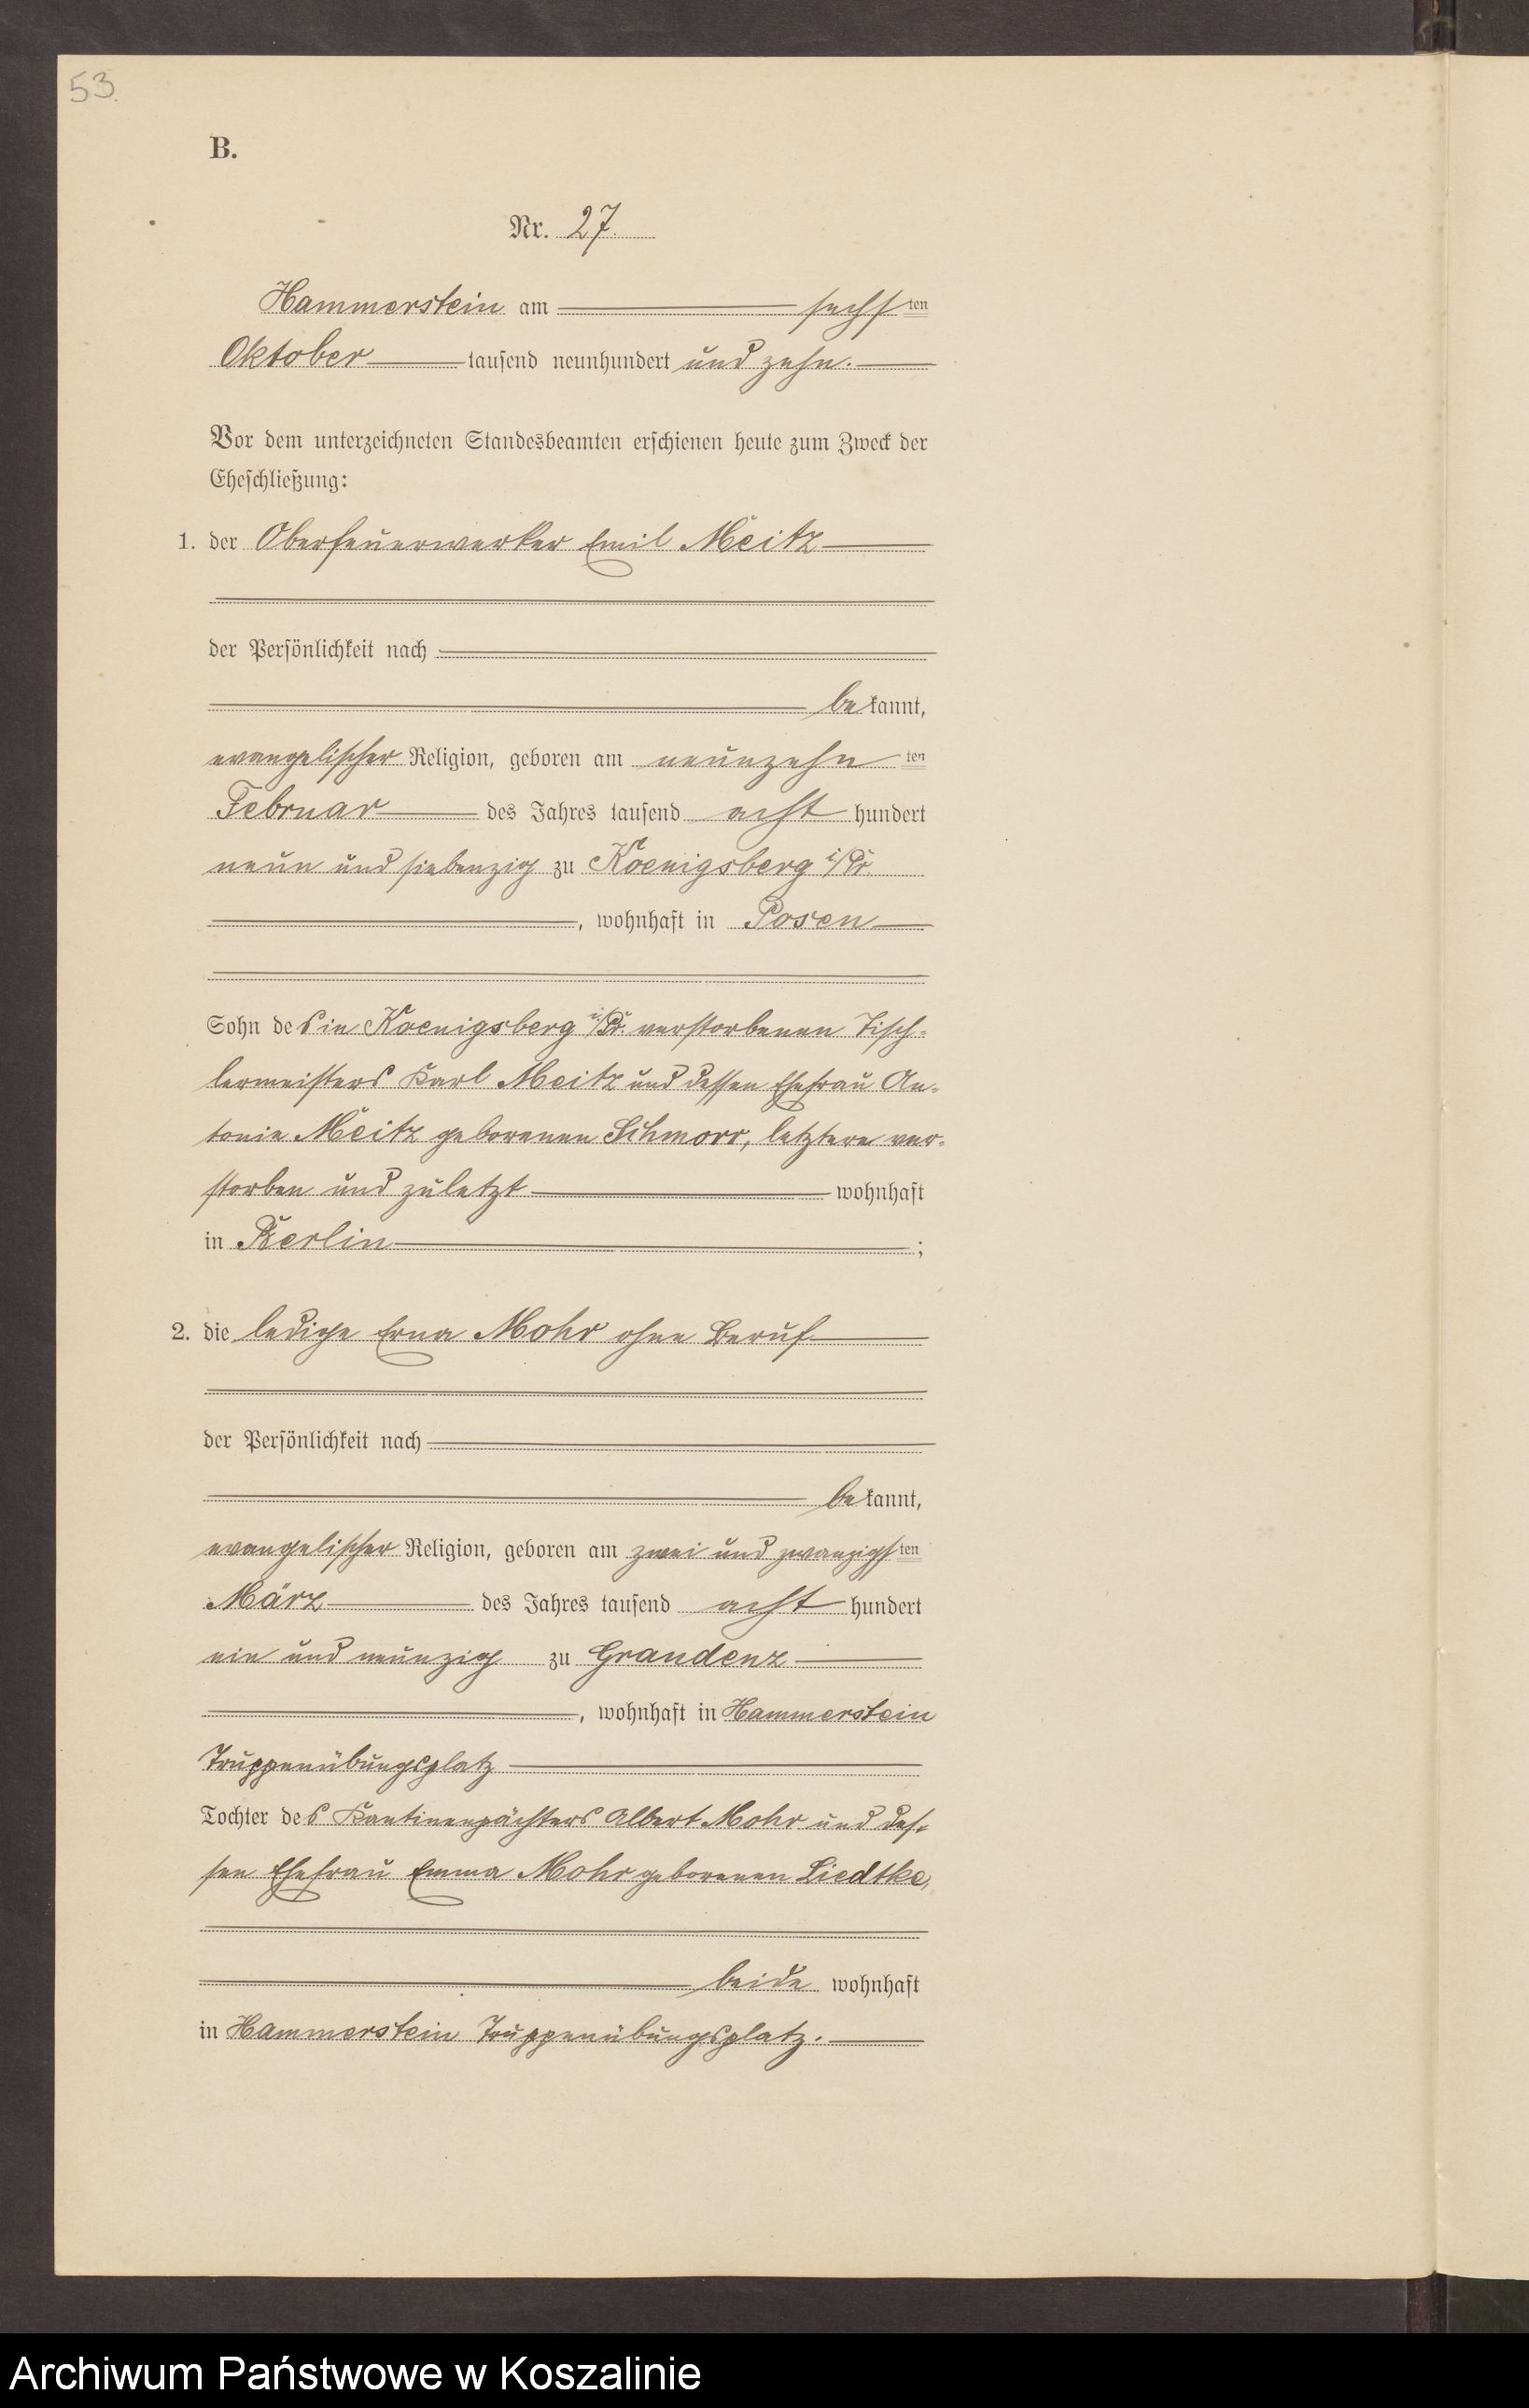 53.
B.
Nr. 27.
Hammerstein am sechsten
Oktober tausend neunhundert und zehn.
Vor dem unterzeichneten Standesbeamten erschienen heute zum Zweck der
Eheschließung:
1. der Oberfeuerwerker Emil Meitz
der Persönlichkeit nach
bekannt,
evangelischer Religion, geboren am neunzehnten
Februar des Jahres tausend acht hundert
neun und siebenzig zu Koenigsberg i/Pr.
, wohnhaft in Posen
Sohn des in Koenigsberg i/Pr. verstorbenen Tisch-
lermeisters Karl Meitz und dessen Ehefrau An-
tonie Meitz geborenen Schmorr, letztere ver-
storben und zuletzt wohnhaft
in Berlin ;
2. die ledige Erna Mohr ohne Beruf
der Persönlichkeit nach
bekannt,
evangelischer Religion, geboren am zwei und zwanzigsten
März des Jahres tausend acht hundert
ein und neunzig zu Graudenz
, wohnhaft in Hammerstein
Truppenübungsplatz
Tochter des Kantinenpächters Albert Mohr und des-
sen Ehefrau Emma Mohr geborenen Liedtke,
beide wohnhaft
in Hammerstein Truppenübungsplatz.
Archiwum Państwowe w Koszalinie